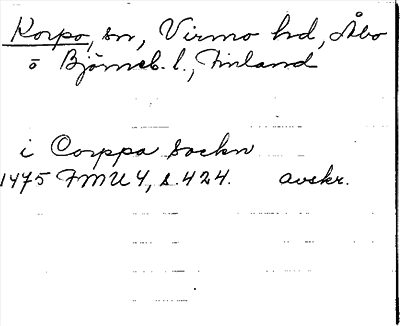 Korpo, sn, Virmo hd, Åbo
o Björneb. l., Finland
i Corppa Sockn
1475 FMU 4, s. 424. avskr.